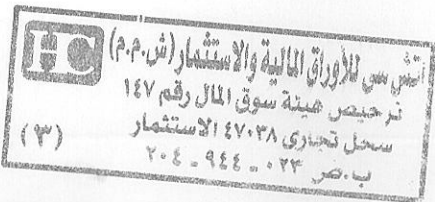 HC
اتش سي للأوراق المالية والاستثمار (ش.م.م)
ترخيص هيئة سوق المال رقم ١٤٧
سجل تجارى ٤٧٠٣٨ الاستثمار
ب.ض ٠٢٣ - ٩٤٤ - ٢٠٤
(٣)